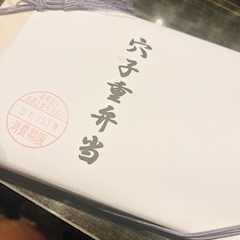 穴子重弁当
消費期限